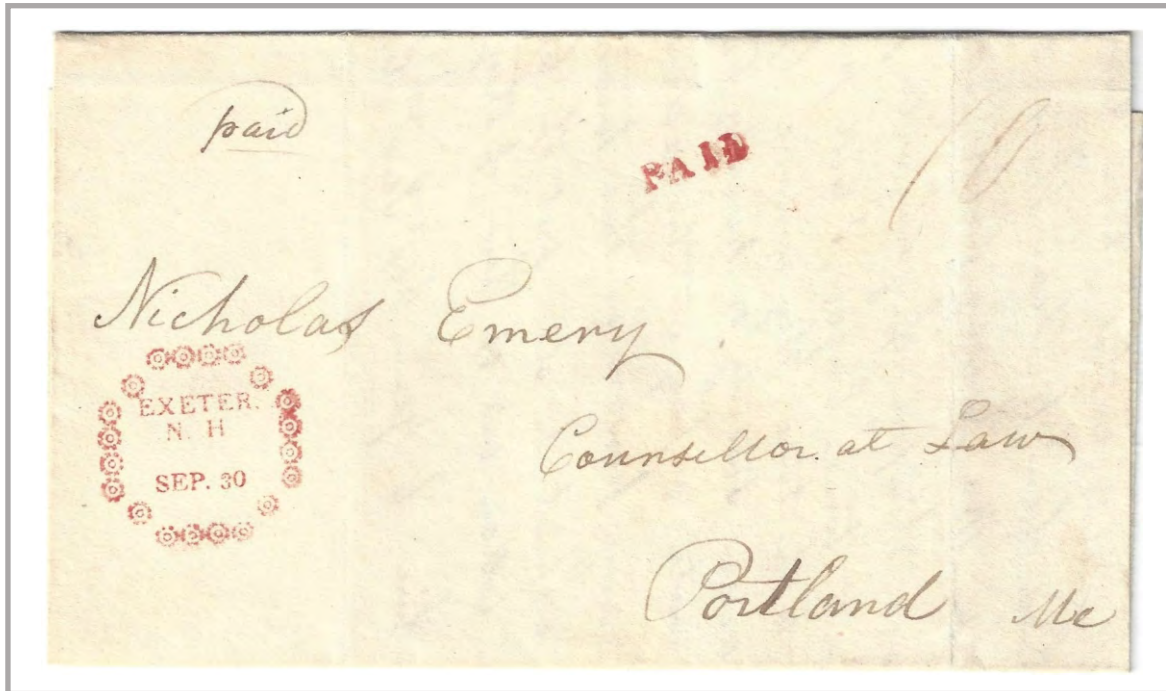 paid
PAID
10
Nicholas Emery
EXETER.
N. H
SEP. 30
Counsellor at Law
Portland Me